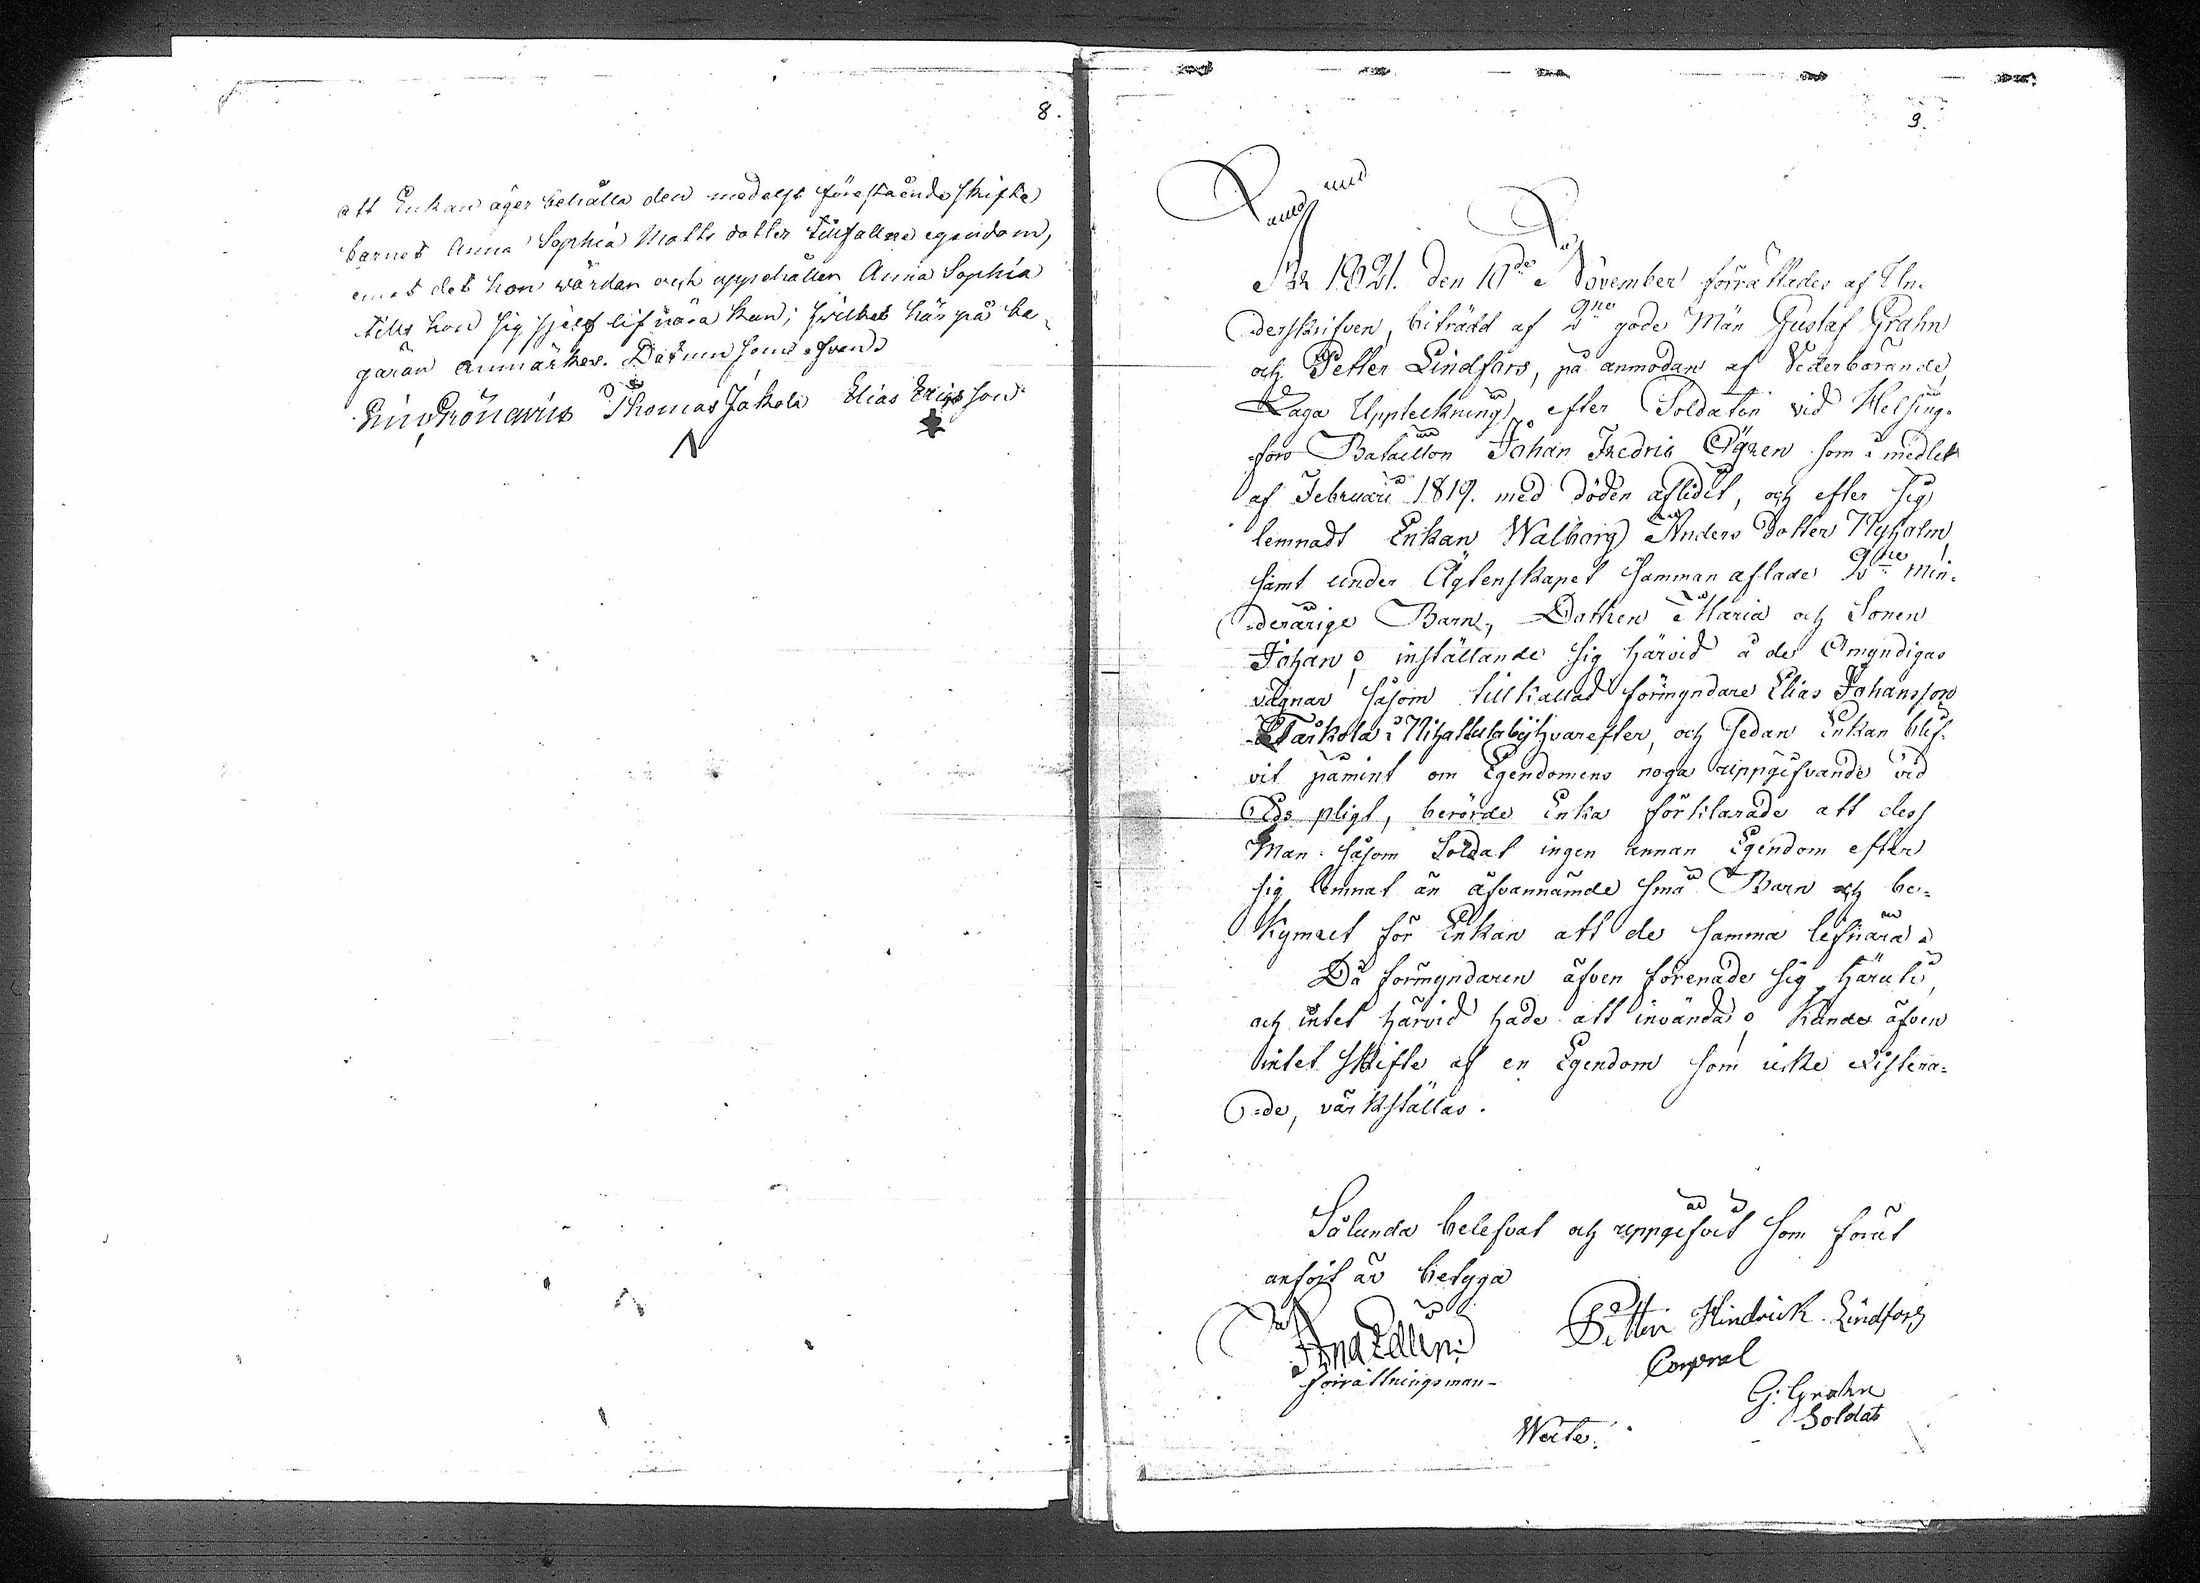 8.
att Enkan äger behålla den medelst förestående skifte
barnet Anna Sophia Matts dotter tillfallne egendom,
emot det hon wårdar och uppehåller Anna Sophia
tills hon sig sjelf lifnära kan; hwilket här på be-
gäran anmärkes. Datum som ofvan
Thomas Jakola Elias Ericsson
9.
År 1821. den 10de November förrättades af Un-
derskrifven, biträdd af 2ne gode Män Gustaf Grahn
och Petter Lindfors, på anmodan af Vederbörande,
Laga Uppteckning efter Soldaten vid Helsing-
fors Bataillon Johan Fredric Ögren som i medlet
af Februari 1819. med döden aflidit, och efter sig
lemnadt Enkan Walborg Anders dotter Nyholm,
samt under Ägtenskapet samman aflade 2ne min-
derårige Barn, Dottren Maria och Sonen
Johan; inställande sig härvid å de Omyndigas
vägnar såsom tillkallad förmyndare Elias Johansson
Tarkola i by hvarefter, och sedan Enkan blif-
vit påmint om Egendomens noga uppgifvande vid
Eds pligt, berörde Enka förklarade att dess
Man såsom Soldat ingen annan Egendom efter
sig lemnat än äfvannämde små Barn och be-
kymret för Enkan att de samma lifnära.
Då förmyndaren äfven förenade sig häruti,
och intet härvid hade att invända; kunde äfven
intet skifte af en Egendom som icke existera-
=de, värkställas.
Sålunda belefvat och uppgifvit som förut
anfört är betyga
Petter Hindrick Lindfors
Corpral
förrättningsman-
G: Grahn
Soldat